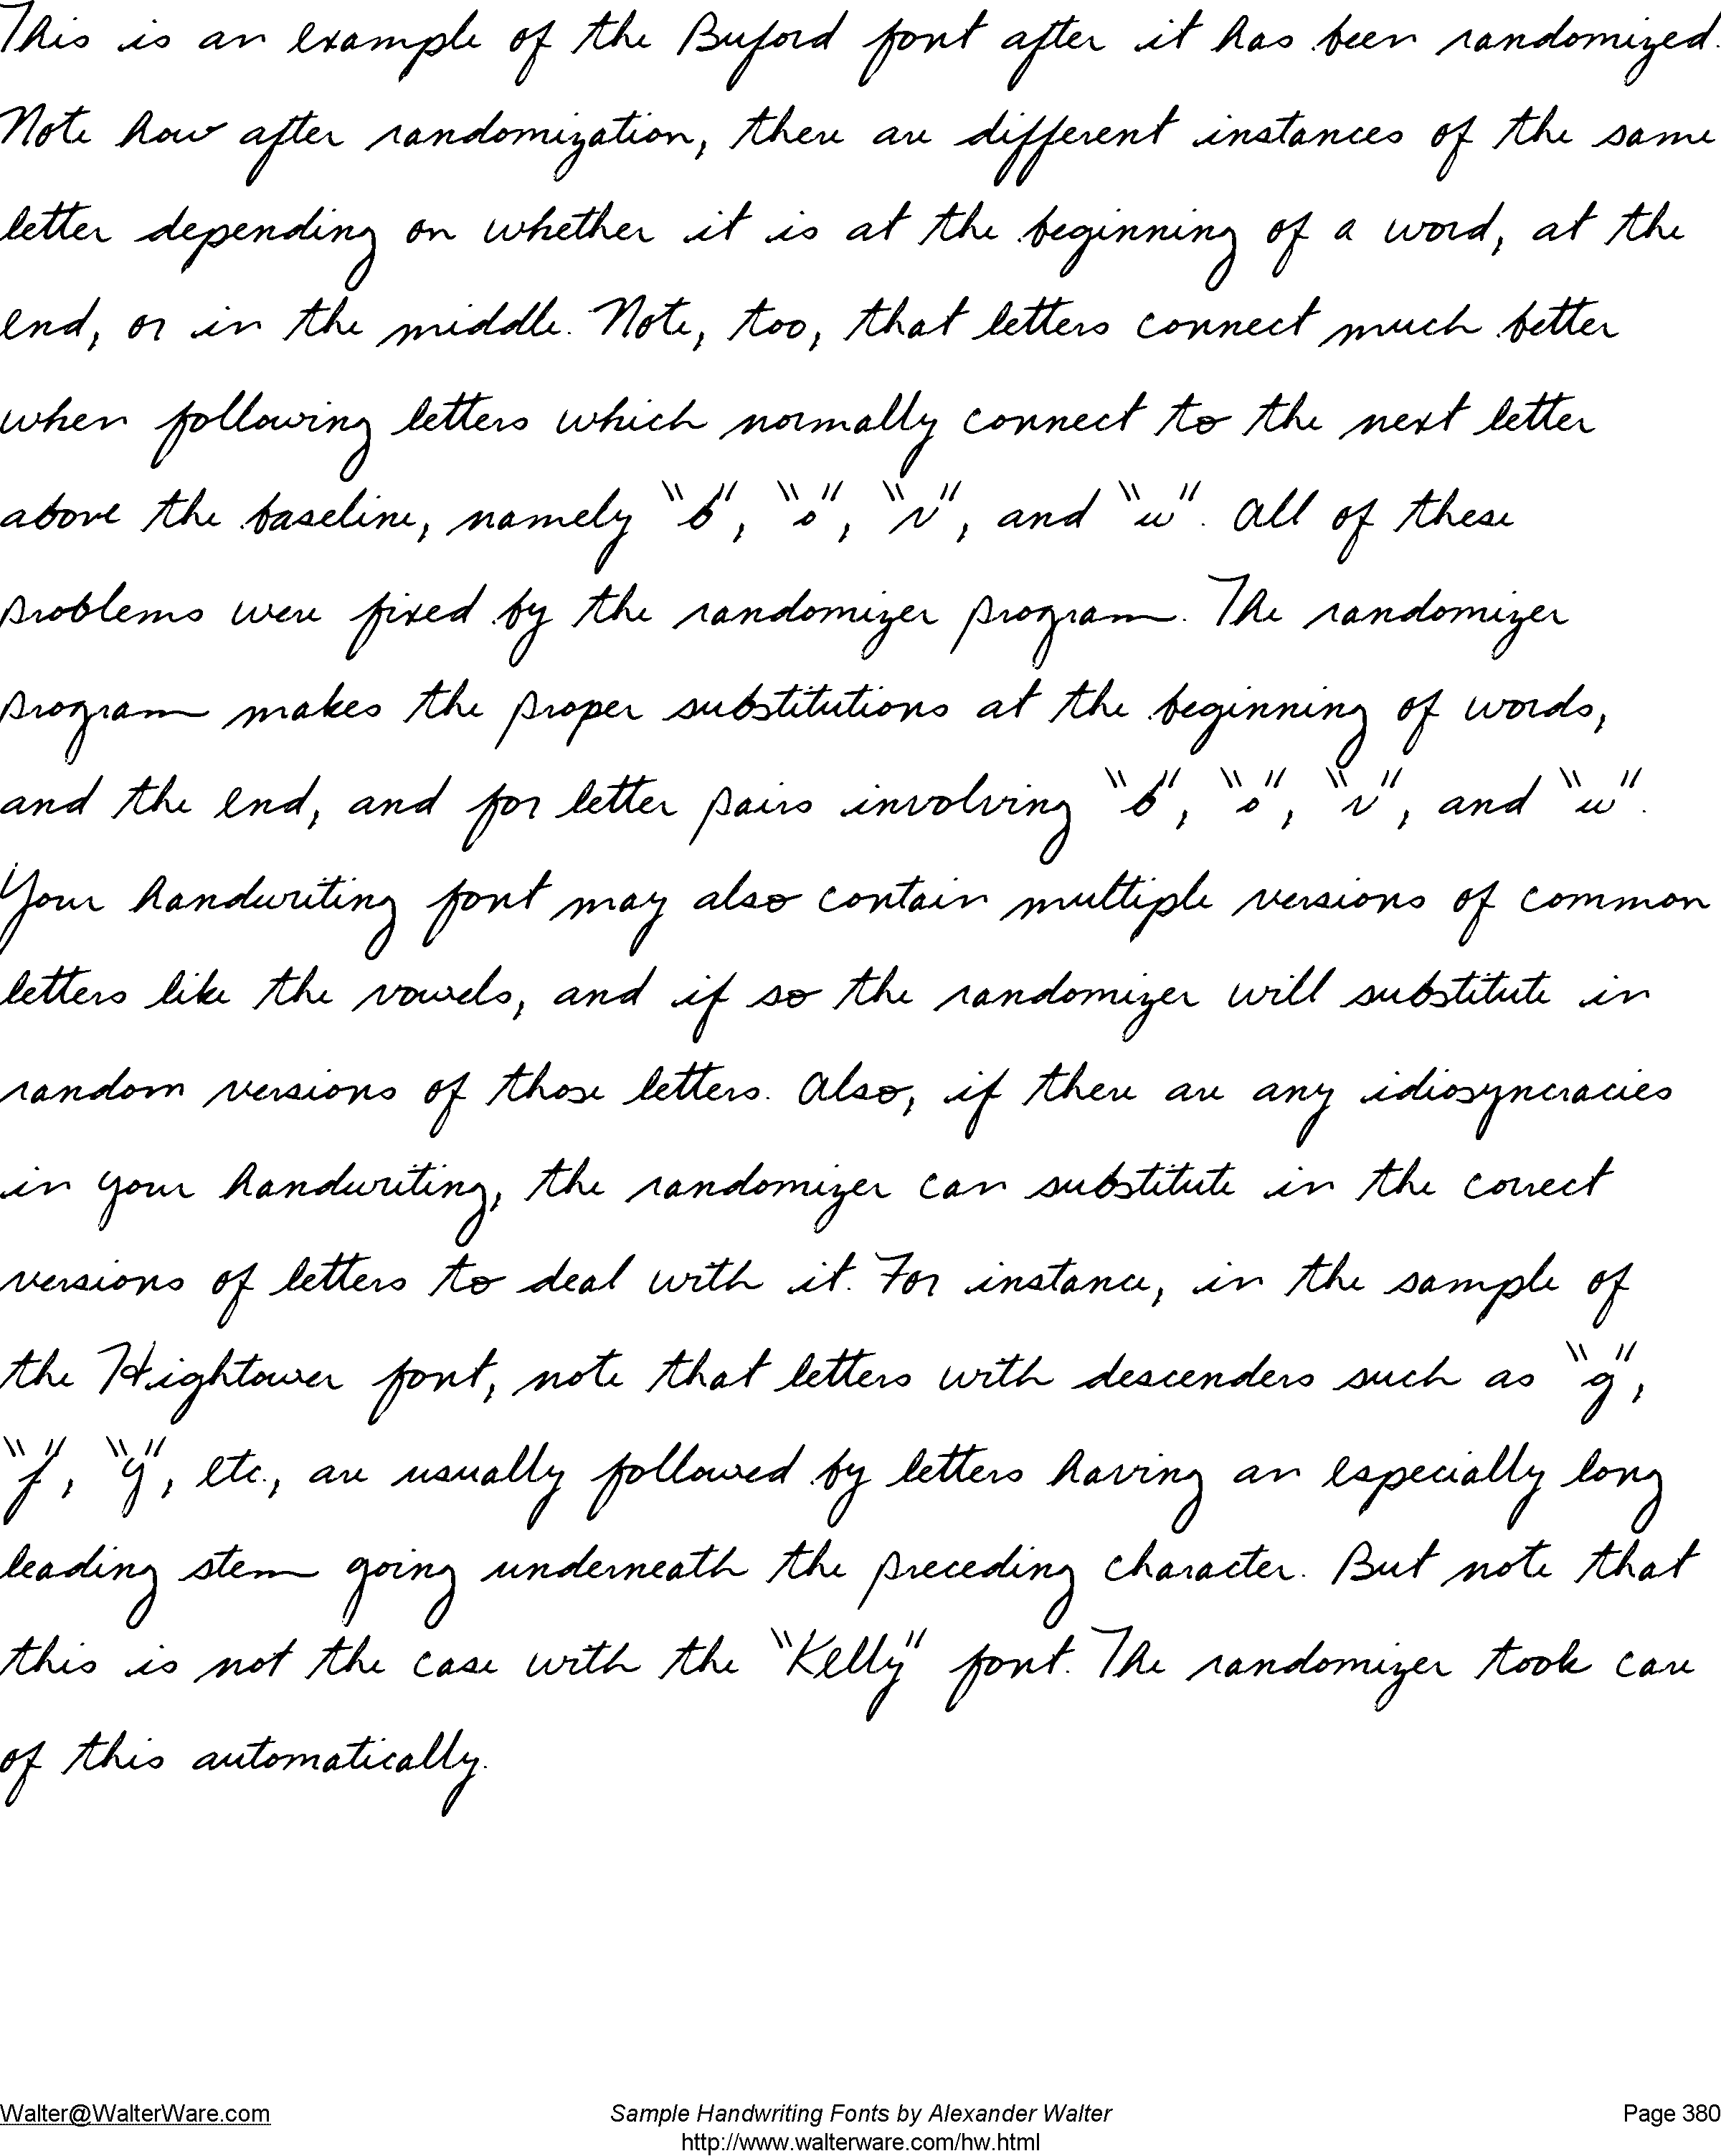 This is an example of the Buford font after it has been randomized.
Note how after randomization, there are different instances of the same
letter depending on whether it is at the beginning of a word, at the
end, or in the middle. Note, too, that letters connect much better
when following letters which normally connect to the next letter
above the baseline, namely "b", "o", "v", and "w". All of these
problems were fixed by the randomizer program. The randomizer
program makes the proper substitutions at the beginning of words,
and the end, and for letter pairs involving "b", "o", "v", and "w".
Your handwriting font may also contain multiple versions of common
letters like the vowels, and if so the randomizer will substitute in
random versions of those letters. Also, if there are any idiosyncracies
in your handwriting, the randomizer can substitute in the correct
versions of letters to deal with it. For instance, in the sample of
the Hightower font, note that letters with descenders such as "g",
"f", "y", etc., are usually followed by letters having an especially long
leading stem going underneath the preceding character. But note that
this is not the case with the "Kelly" font. The randomizer took care
of this automatically.
Walter@WalterWare.com Sample Handwriting Fonts by Alexander Walter Page 380
http://www.walterware.com/hw.html